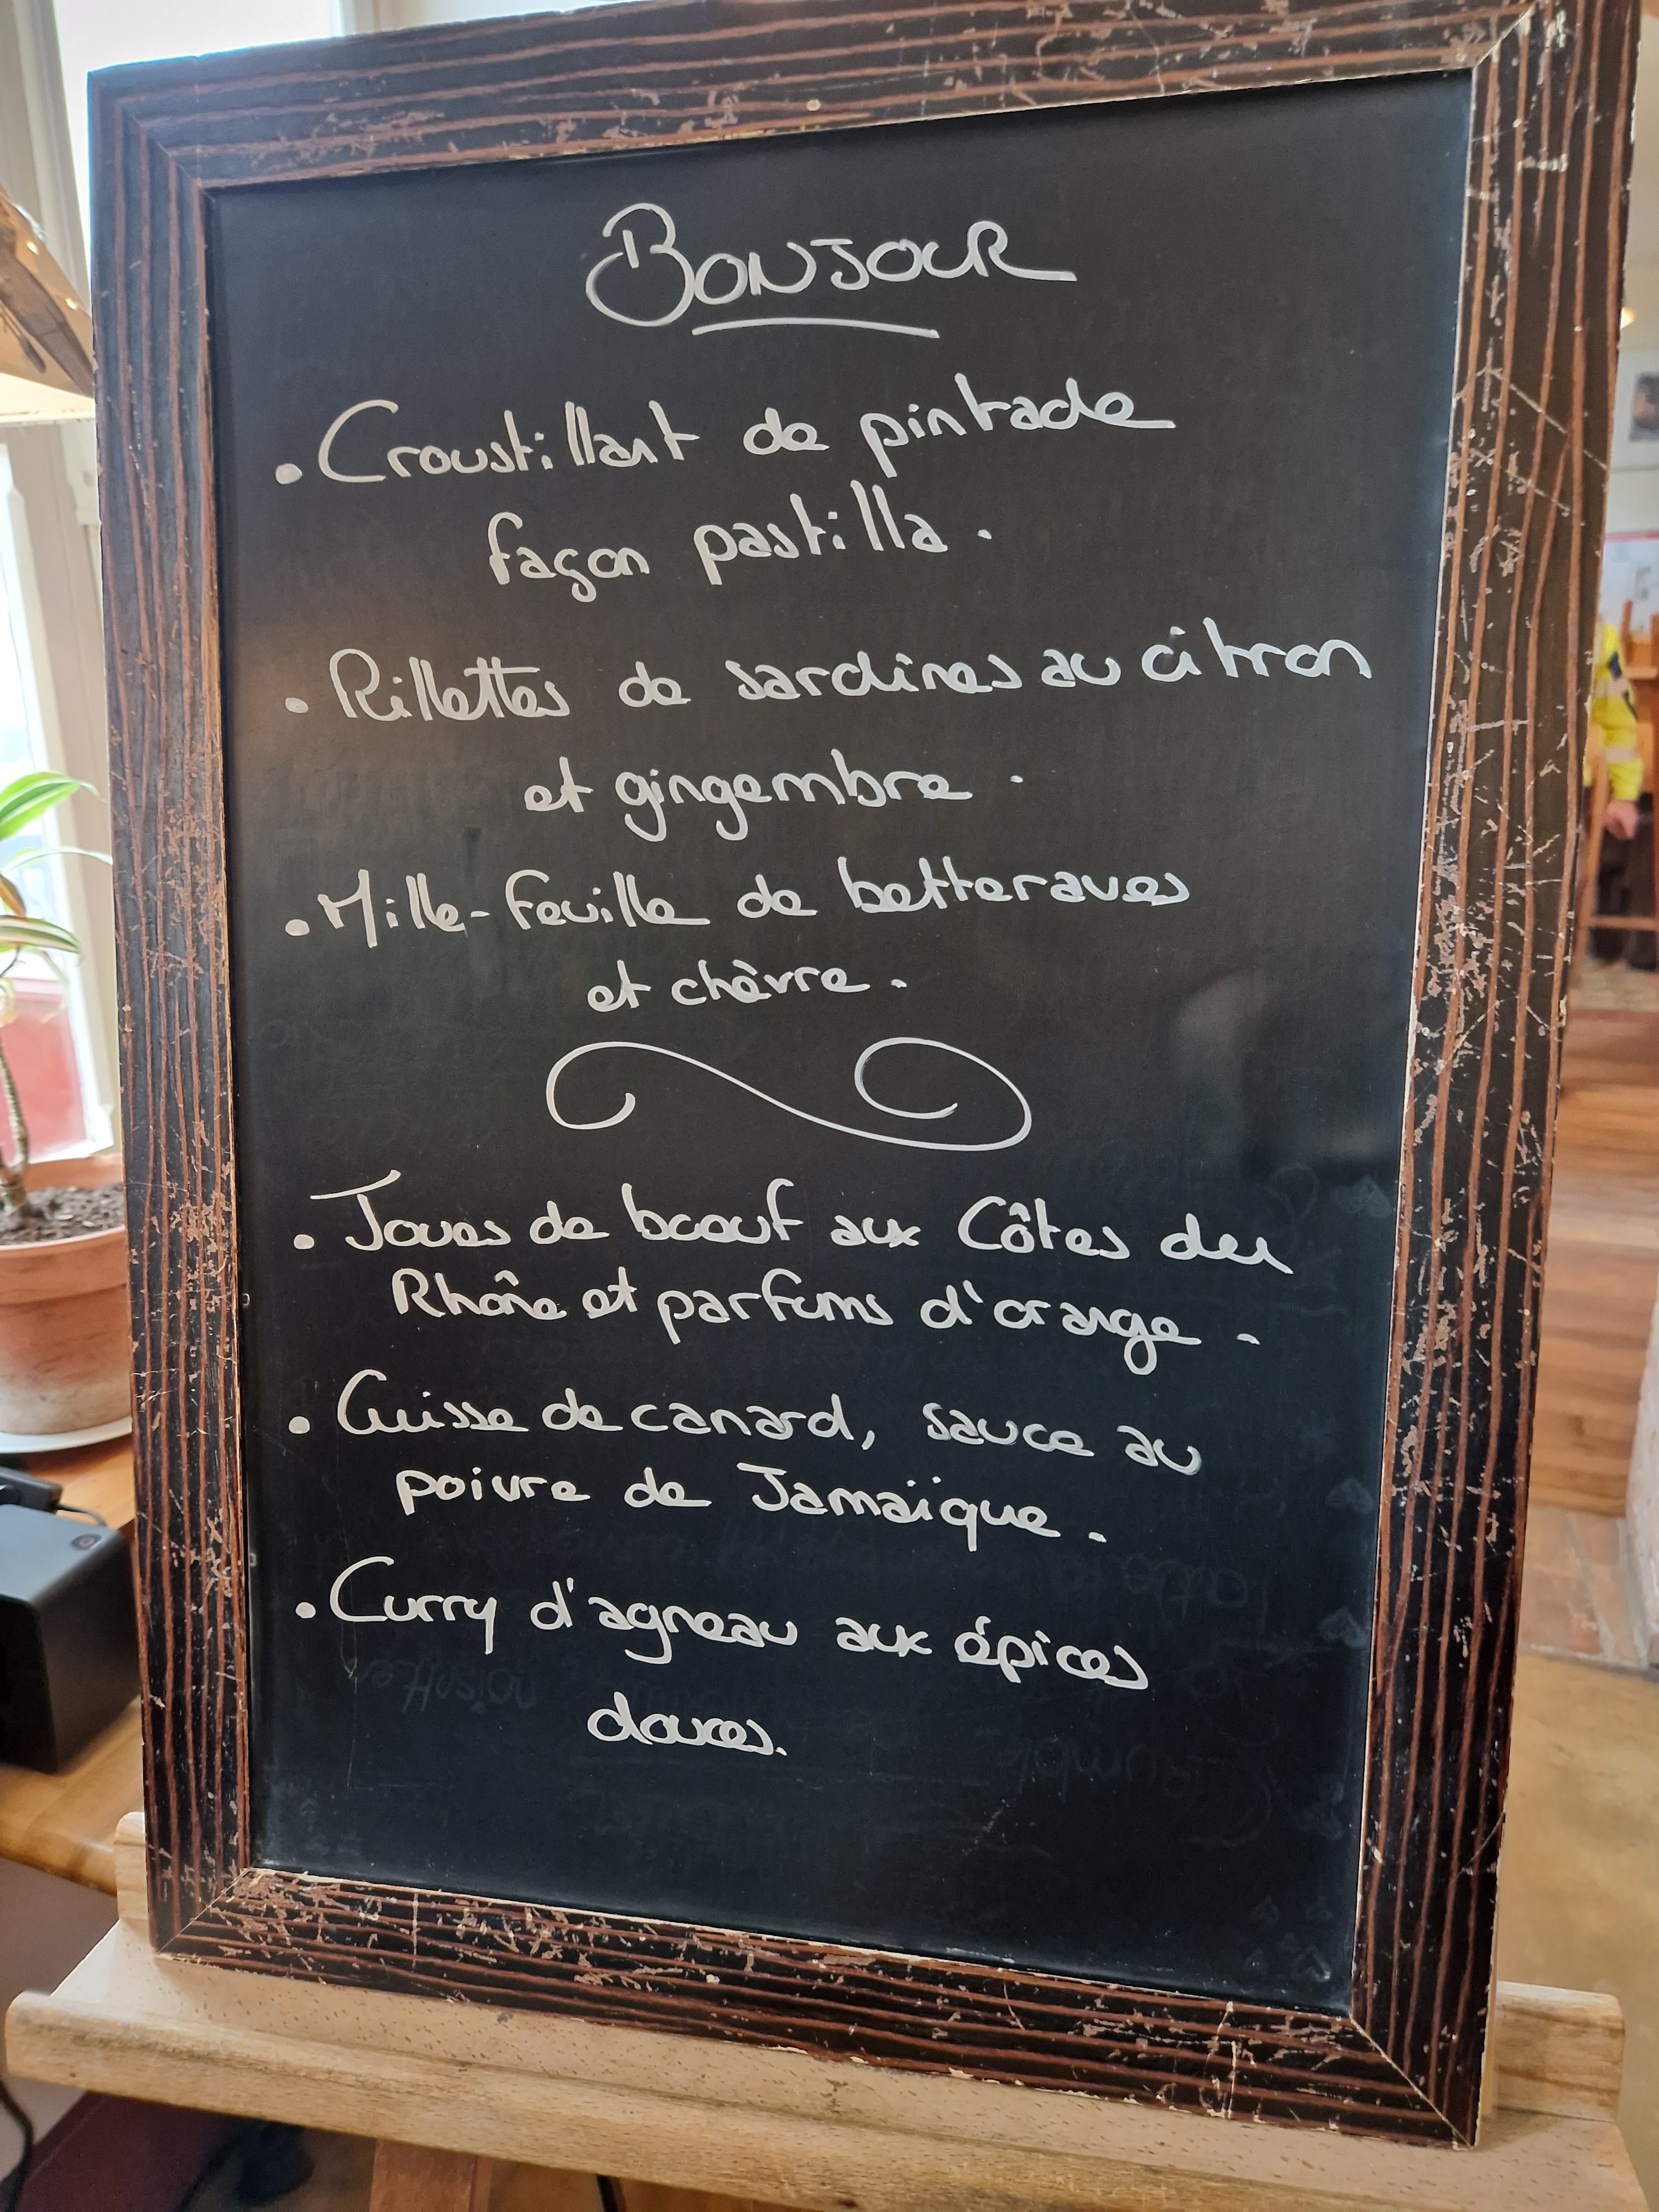 BONJOUR
• Croustillant de pintade
façon pastilla.
• Rillettes de sardines au citron
et gingembre.
• Mille-feuille de betteraves
et chèvre.
• Joues de boeuf aux Côtes du
Rhône et parfums d'orange.
• Cuisse de canard, sauce au
poivre de Jamaïque.
• Curry d'agneau aux épices
douces.